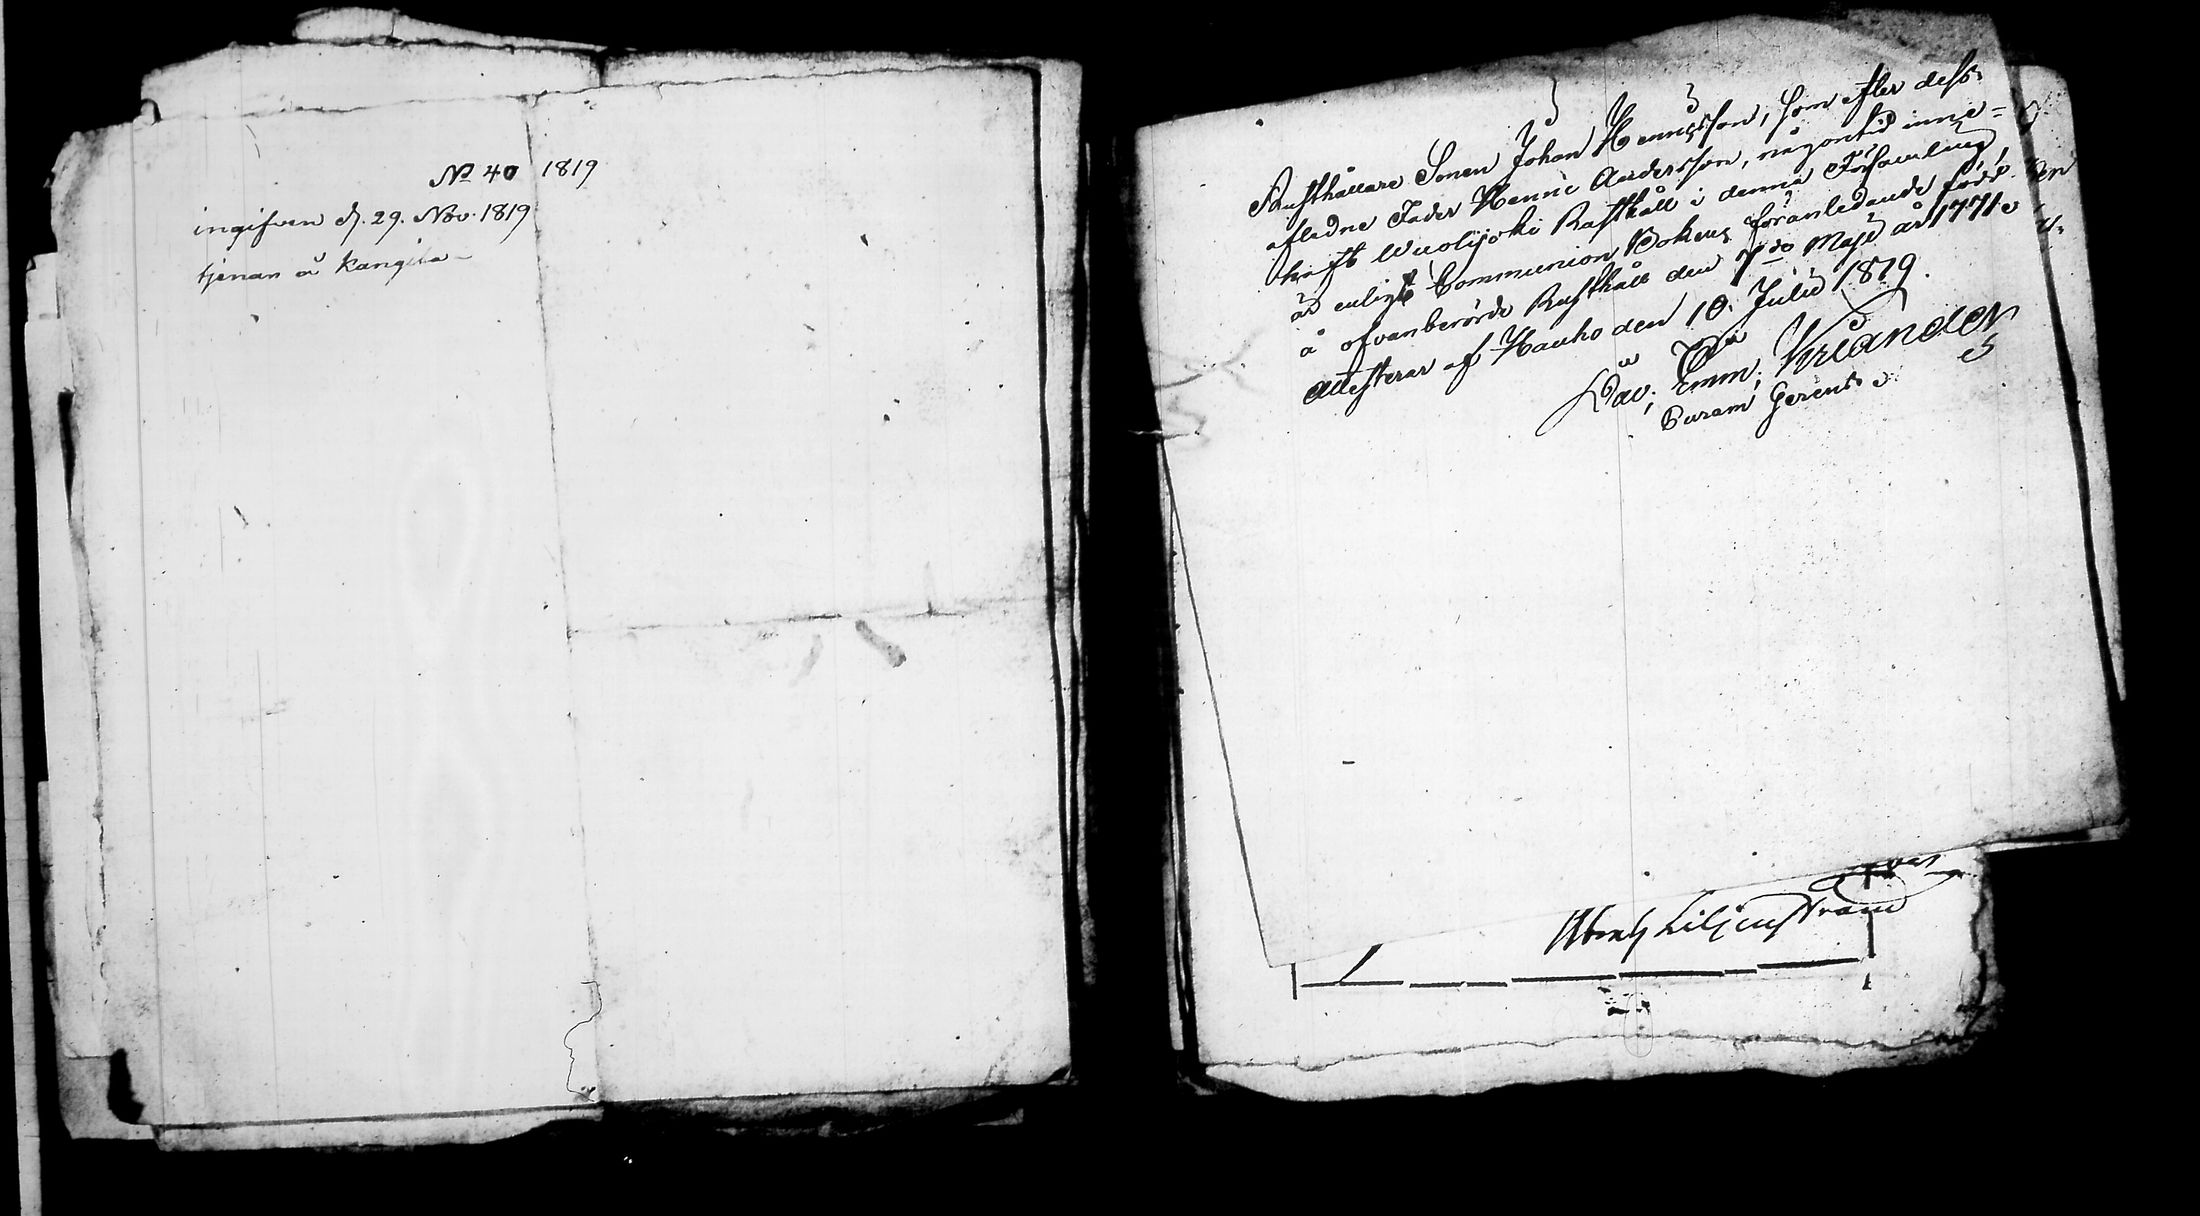 No 40 1819
ingifven d. 29. Nov. 1819
tjenar å Kangila
Rusthållare Sonen Johan Hennesson, som efter dess
afledne Fader Henric Andersson, någontid inne=
haft Wuolijoki Rusthåll i denna Församling,
är enligt Communion Bokens föranledande född
å ofvanberörde Rusthåll den 7de Maji år 1771.
Attesterar af Hauho den 10. Julii 1819.
Dav. Emm. Kreander
Curam Gerens.
Liljenstrand